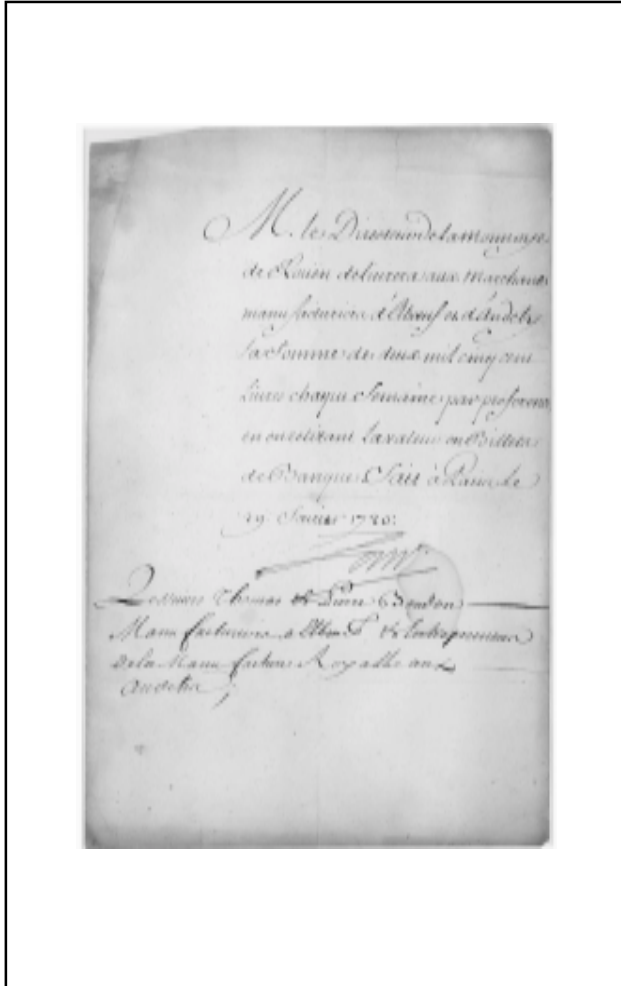 M. les Directeur de la monnoye
de Roüen delivrera aux marchands
manufacturiers d'Elbeuf et d'Andely
la Somme de deux mil cinq cent
Livres chaque Semaine par preference
en en retirant la valeur en Billets
de Banque Fait à Paris Le
29 1720.
Les sieurs Thomas & Pierre Bourdon
Manufacturiers a Elbeuf & Entrepreneurs
de la Manufacture Royalle aux